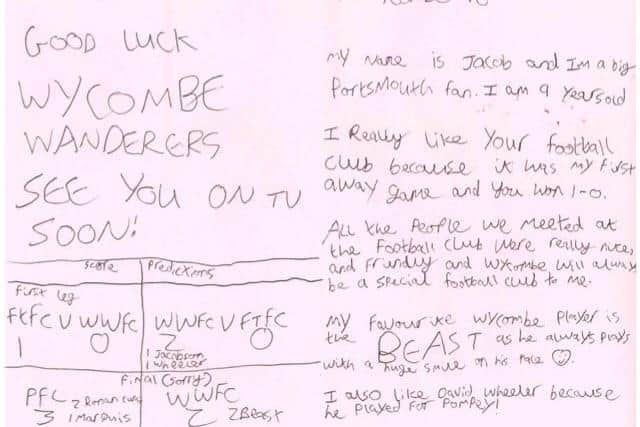 GOOD LUCK
WYCOMBE
WANDERERS
SEE YOU ON TV
SOON!
Score Predictions
First leg
FTFC V WWFC
1 0
WWFC V FTFC
2 0
1 Jacobson
1 Wheeler
Final (sorry)
PFC 2 Roman
3 1 Marquis
WWFC
2 2 Beast
My Name is Jacob and Im a big
Portsmouth fan. I am 9 years old
I Really like your football
club because it was my first
away game and you won 1-0.
All the People we meeted at
the football club were really nice,
and friendly and Wycombe will always
be a special football club to me.
My favourite Wycombe player is
the BEAST as he always plays
with a huge smile on his face
I also like David Wheeler because
he played for Pompey!